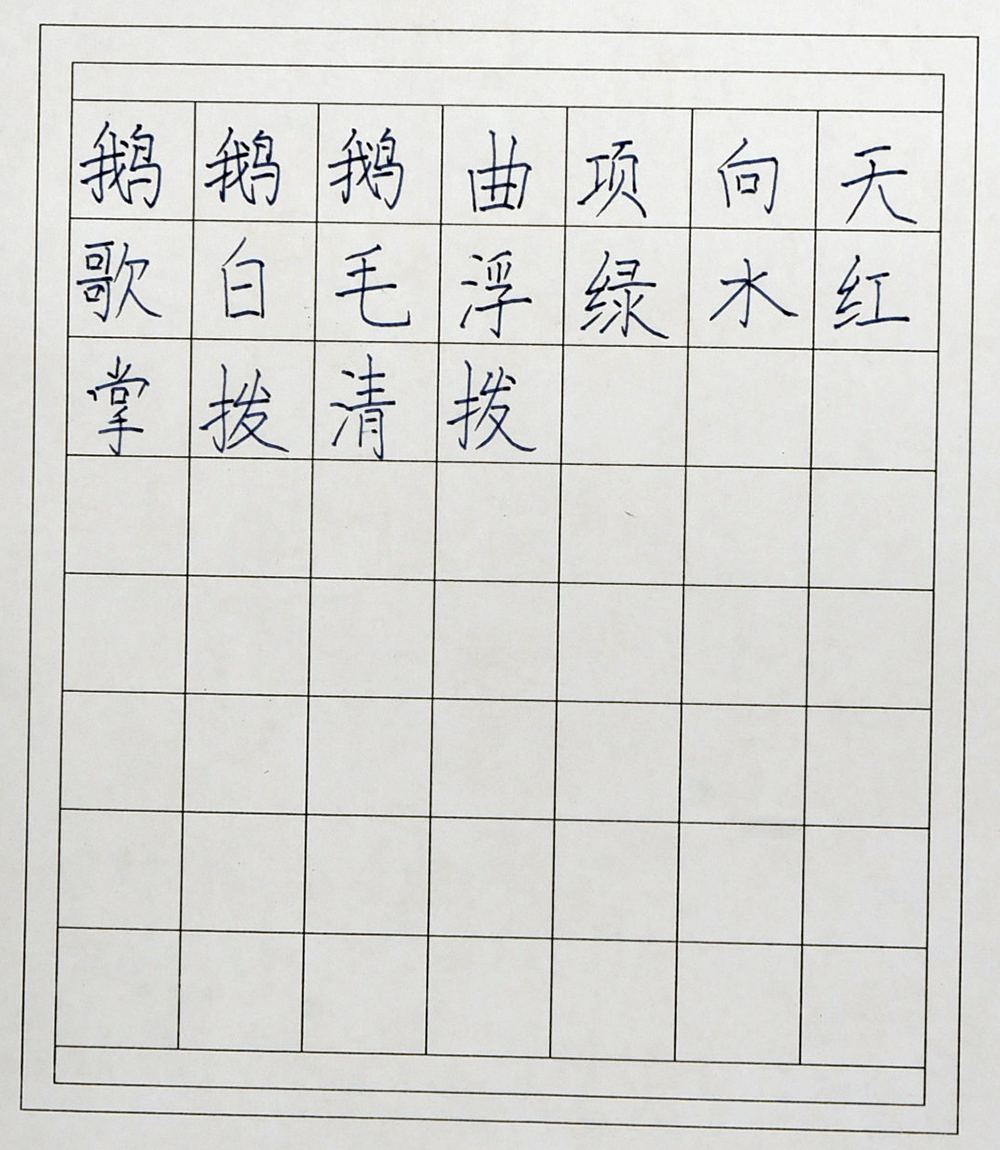 鹅鹅鹅曲项向天
歌白毛浮绿水红
掌拨清拨